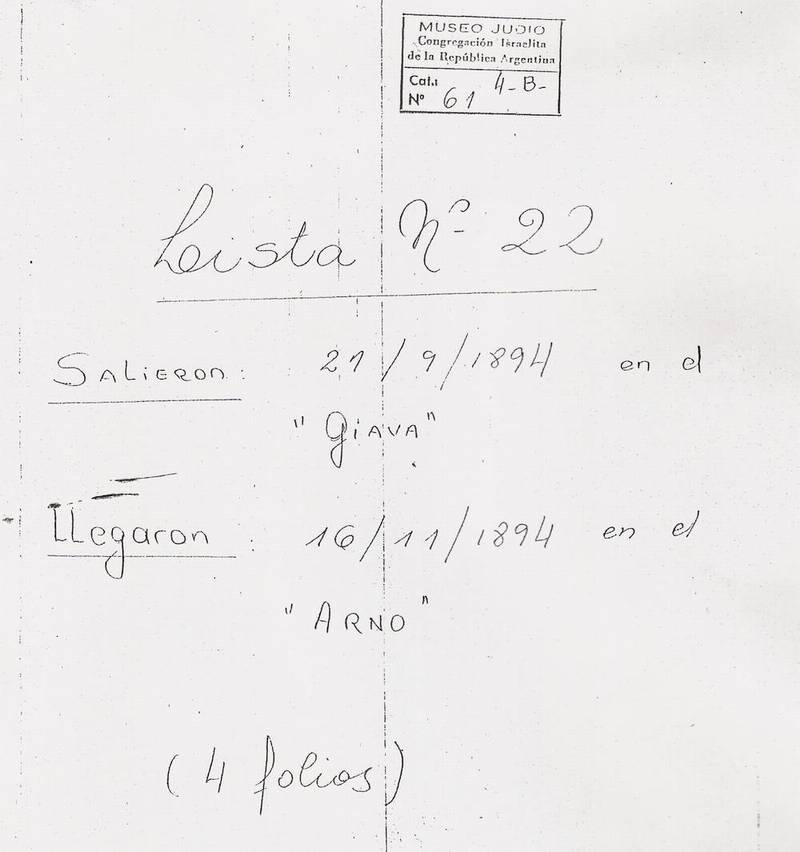 MUSEO JUDIO
Congregación Israelita
de la República Argentina
Cat. 4-B-
Nº 61
Lista Nº 22
SALIERON: 21/9/1894 en el
"GIAVA"
LLegaron: 16/11/1894 en el
"ARNO"
(4 folios)